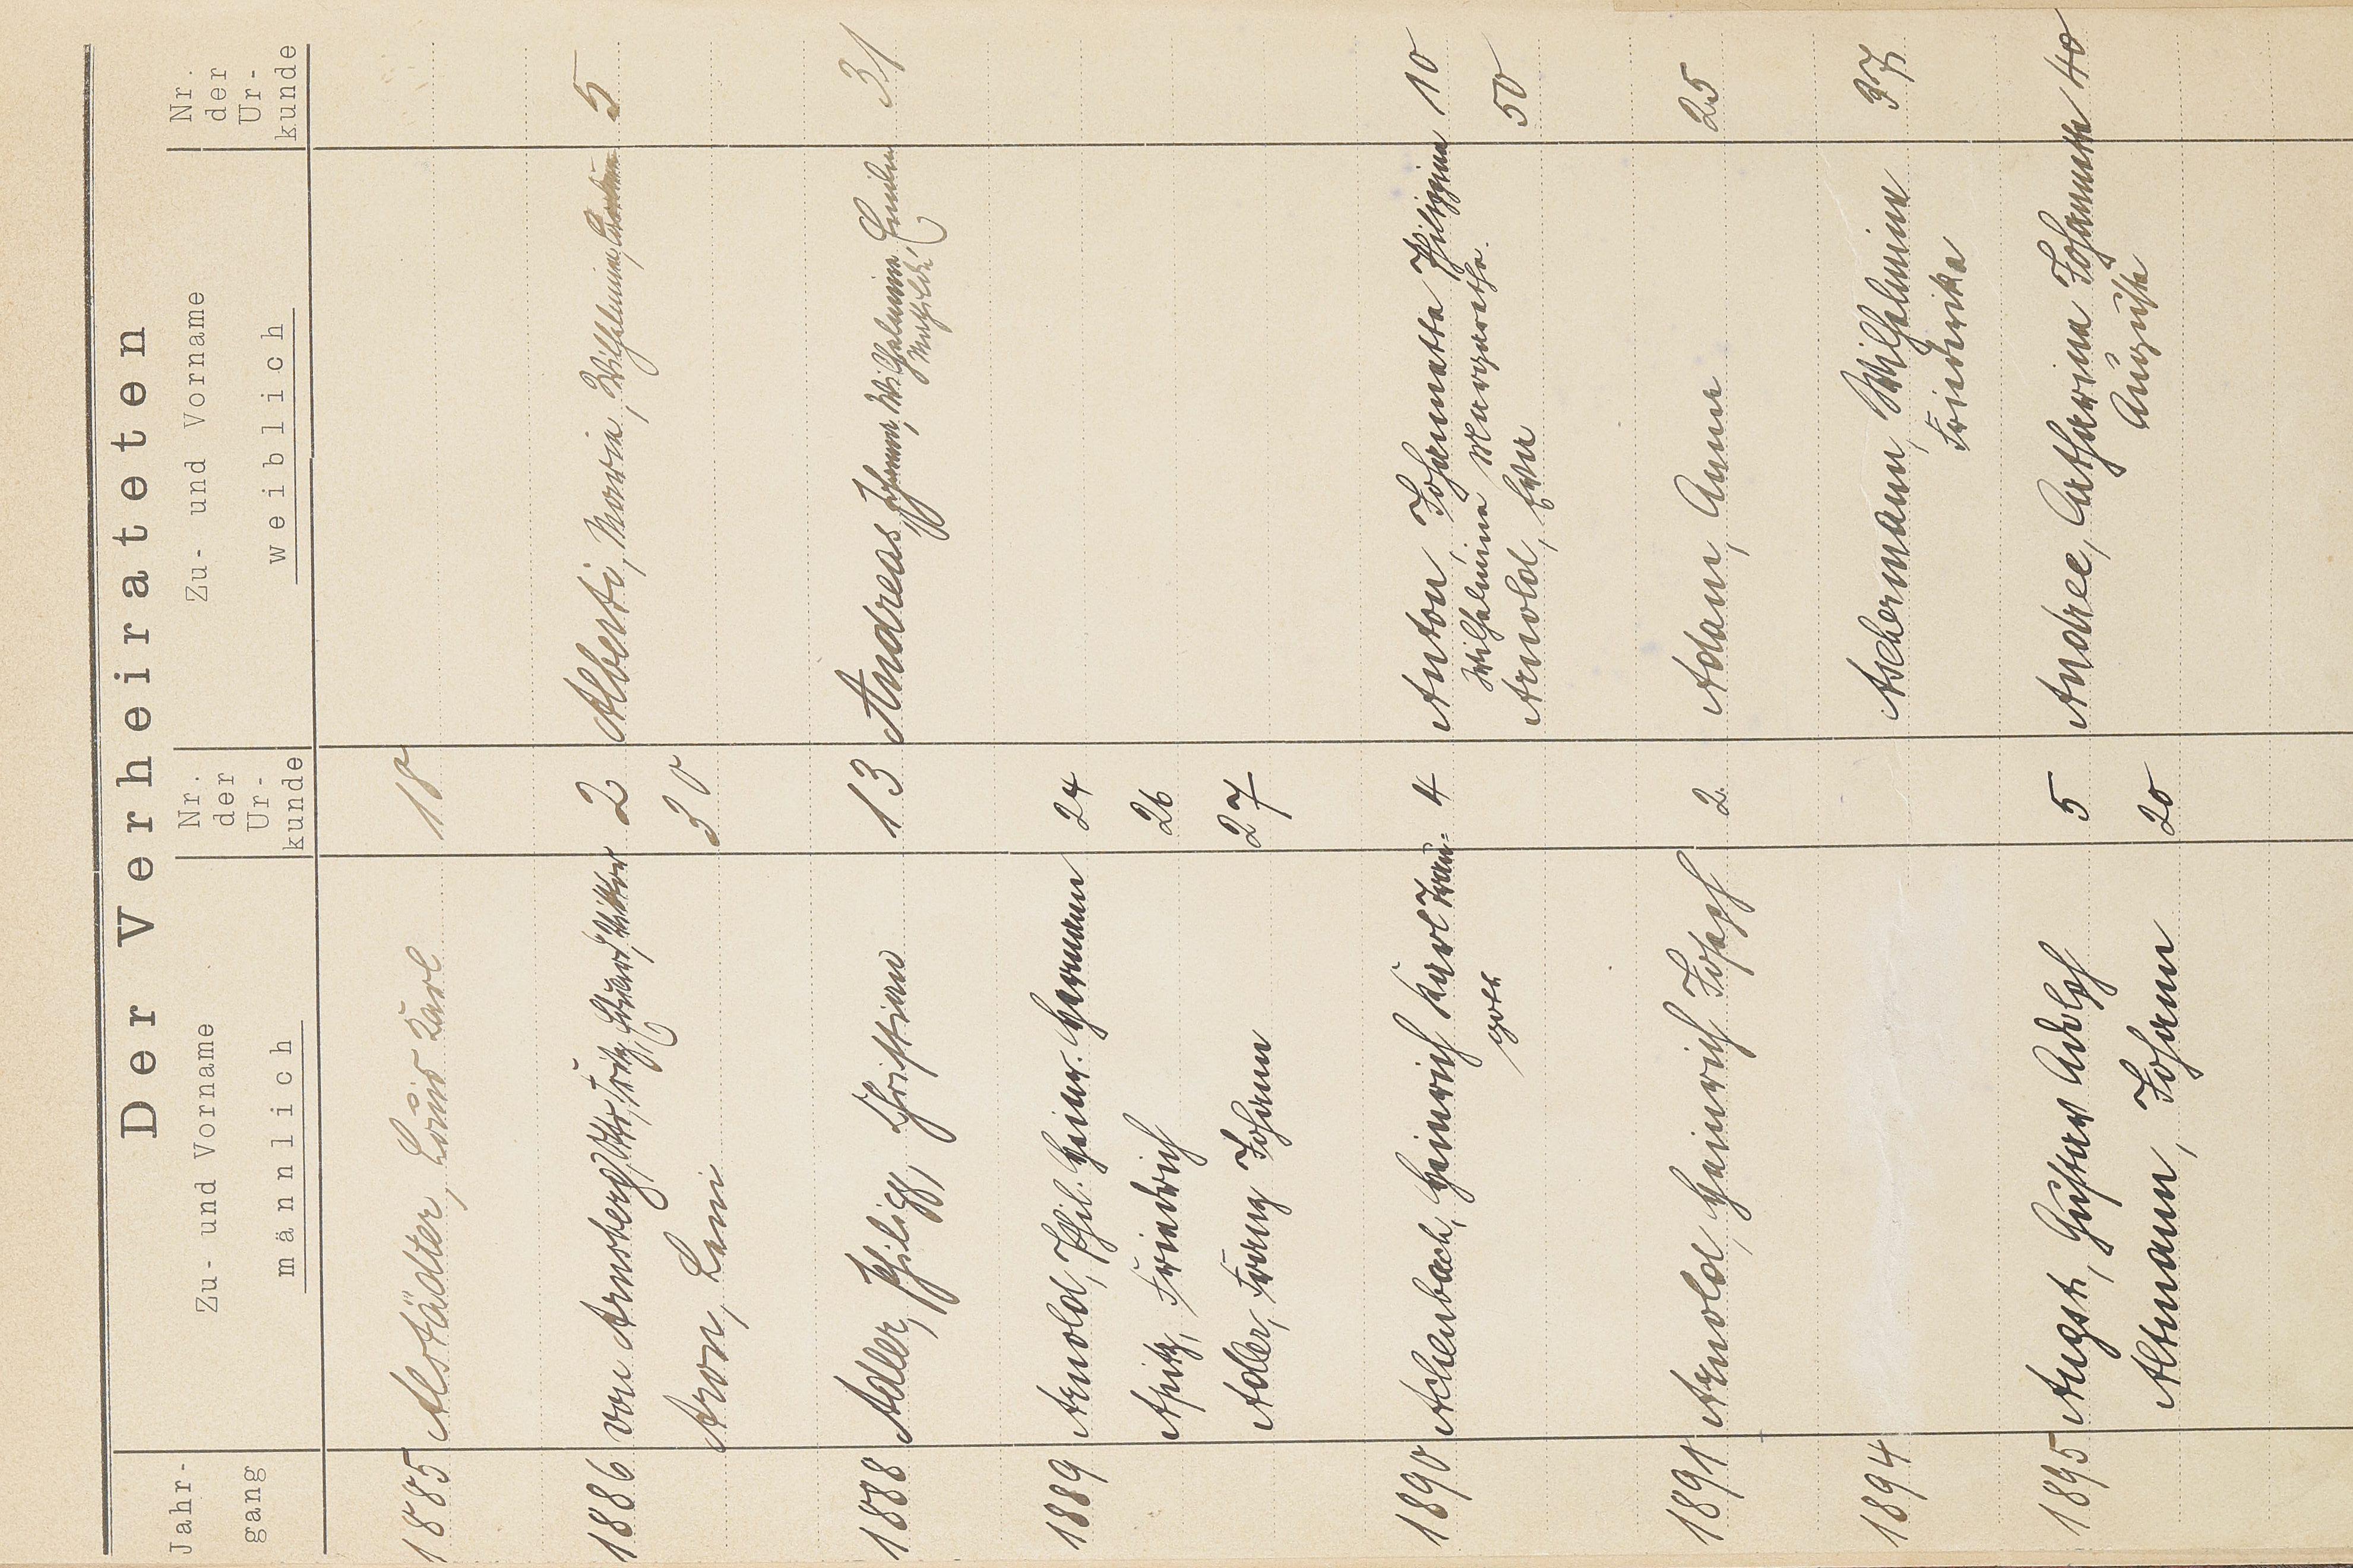 Der Verheirateten
Jahr-
gang
Zu- und Vorname
männlich
Nr.
der
Ur-
kunde
Zu- und Vorname
weiblich
Nr.
der
Ur-
kunde
1885 Alstädter, Louis Karl 18
1886 von Arnsberg, Otto, Fritz, Eduard, Viktor 2 Alberti, Maria, Wilhelmine, 5
Aron, Levi 30
1888 Adler, Philipp, Christian 13 Andreas, Johanna, Wilhelmine, Emilie 31
Mathilde
1889 Arnold, Phil. Heinr. Hermann 24
Apitz, Friedrich 26
Adler, Franz Johann 27
1890 Achenbach, Heinrich Karl Trau- 4 Anton, Johannetta Philippina 10
gott Wilhelmina Margaretha
Arnold, Eva 50
1891 Arnold, Heinrich Joseph 2 Adam, Anna 25
1894 Aschermann, Wilhelmine 37
Friederika
1895 Angst, Gustav Adolf 5 Andree, Catharina Johannette 40
Altmann, Johann 20 Auguste